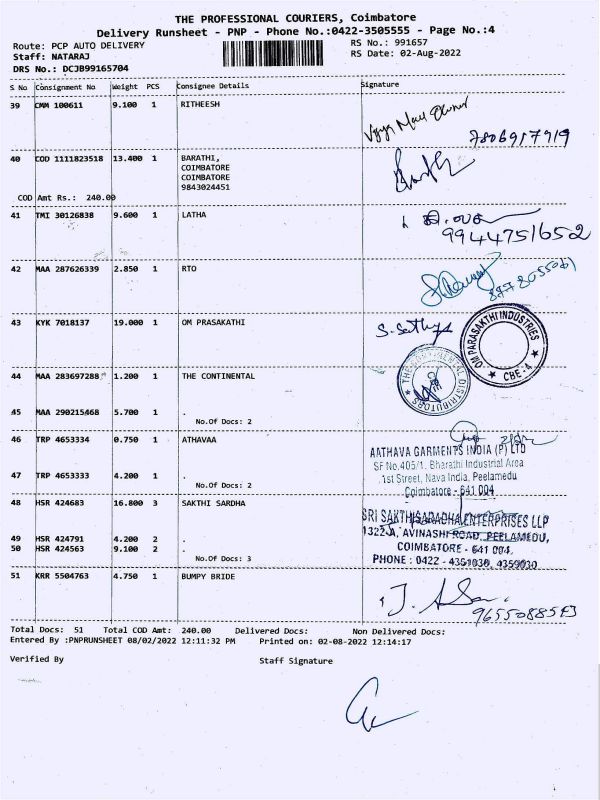 THE PROFESSIONAL COURIERS, Coimbatore
Delivery Runsheet - PNP - Phone No.:0422-3505555 - Page No.:4
Route: PCP AUTO DELIVERY RS No.: 991657
Staff: NATARAJ RS Date: 02-Aug-2022
DRS No.: DCJB99165704
S No Consignment No Weight PCS Consignee Details Signature
39 CMM 100611 9.100 1 RITHEESH
7806917919
40 COD 1111823518 13.400 1 BARATHI,
COIMBATORE
COIMBATORE
9843024451
COD Amt Rs.: 240.00
41 TMI 30126838 9.600 1 LATHA
9944751652
42 MAA 287626339 2.850 1 RTO
43 KYK 7018137 19.000 1 OM PRASAKATHI
S. Sathya
OM PARASAKTHI INDUSTRIES
★ CBE-4 ★
44 MAA 283697288 1.200 1 THE CONTINENTAL
THE CONTINENTAL DISTRIBUTORS
45 MAA 290215468 5.700 1 .
No.Of Docs: 2
46 TRP 4653334 0.750 1 ATHAVAA
AATHAVA GARMENTS INDIA (P) LTD
SF No.405/1, Bharathi Industrial Area
1st Street, Nava India, Peelamedu
Coimbatore - 641 004
47 TRP 4653333 4.200 1 .
No.Of Docs: 2
48 HSR 424683 16.800 3 SAKTHI SARDHA
SRI SAKTHISARADHA ENTERPRISES LLP
1322-A, AVINASHI ROAD, PEELAMEDU,
COIMBATORE - 641 004.
PHONE : 0422 - 4351030, 4359030
49 HSR 424791 4.200 2 .
50 HSR 424563 9.100 2 .
No.Of Docs: 3
51 KRR 5504763 4.750 1 BUMPY BRIDE
9655088543
Total Docs: 51 Total COD Amt: 240.00 Delivered Docs: Non Delivered Docs:
Entered By :PNPRUNSHEET 08/02/2022 12:11:32 PM Printed on: 02-08-2022 12:14:17
Verified By Staff Signature